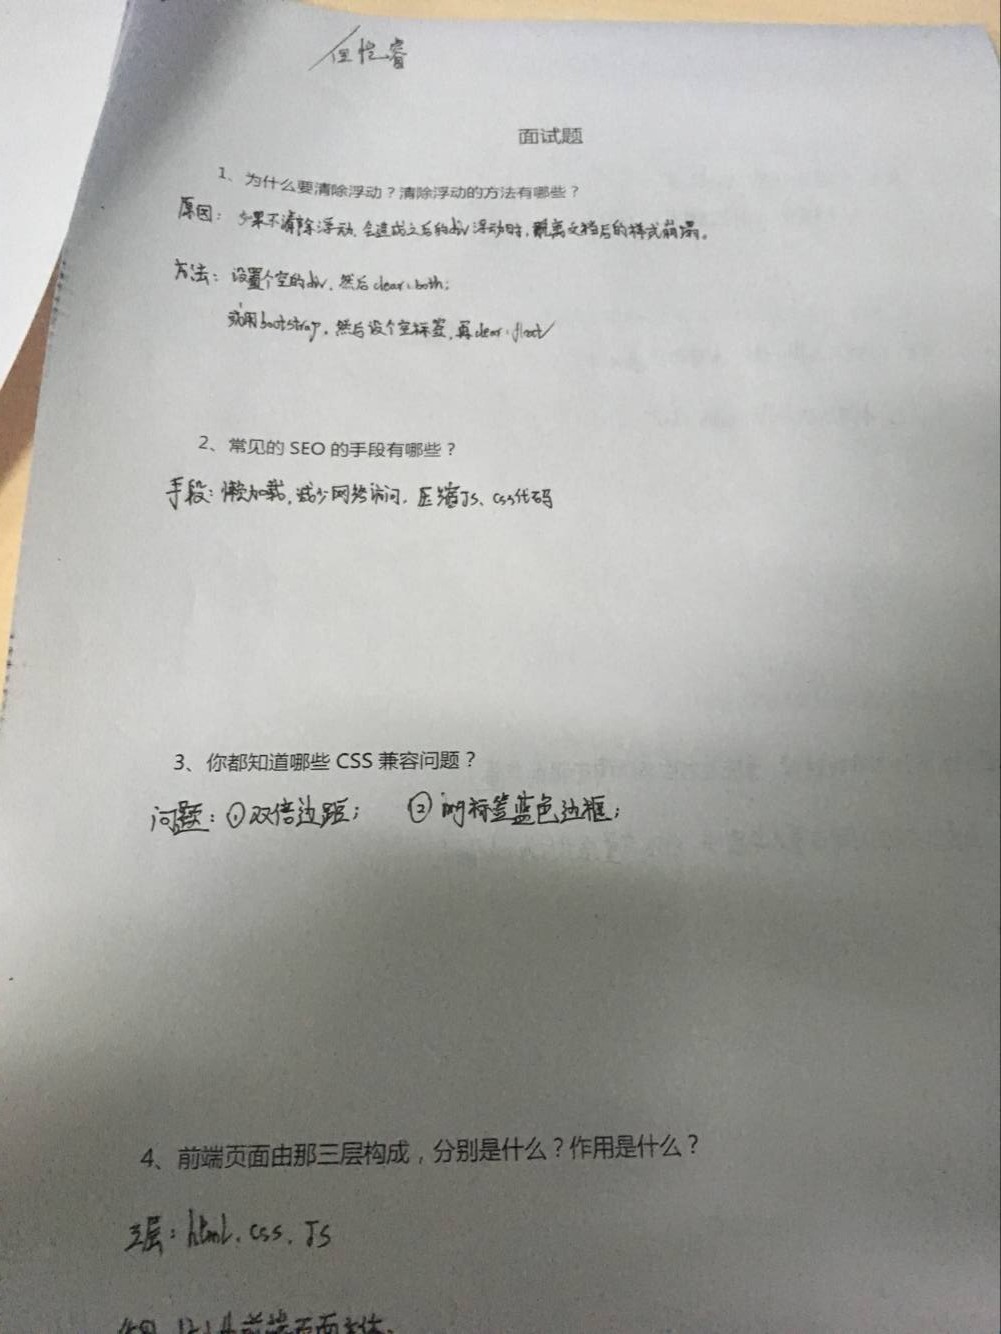 但恺睿
面试题
1、为什么要清除浮动？清除浮动的方法有哪些？
原因：如果不清除浮动，会造成之后的div浮动时，脱离文档后的样式崩塌。
方法：设置个空的div，然后clear:both;
或用bootstrap，然后设个空标签，再clear:float
2、常见的 SEO 的手段有哪些？
手段：懒加载，减少网络访问，压缩JS、css代码
3、你都知道哪些 CSS 兼容问题？
问题：①双倍边距； ②img标签蓝色边框；
4、前端页面由那三层构成，分别是什么？作用是什么？
三层：html、css、JS
前端页面主体，